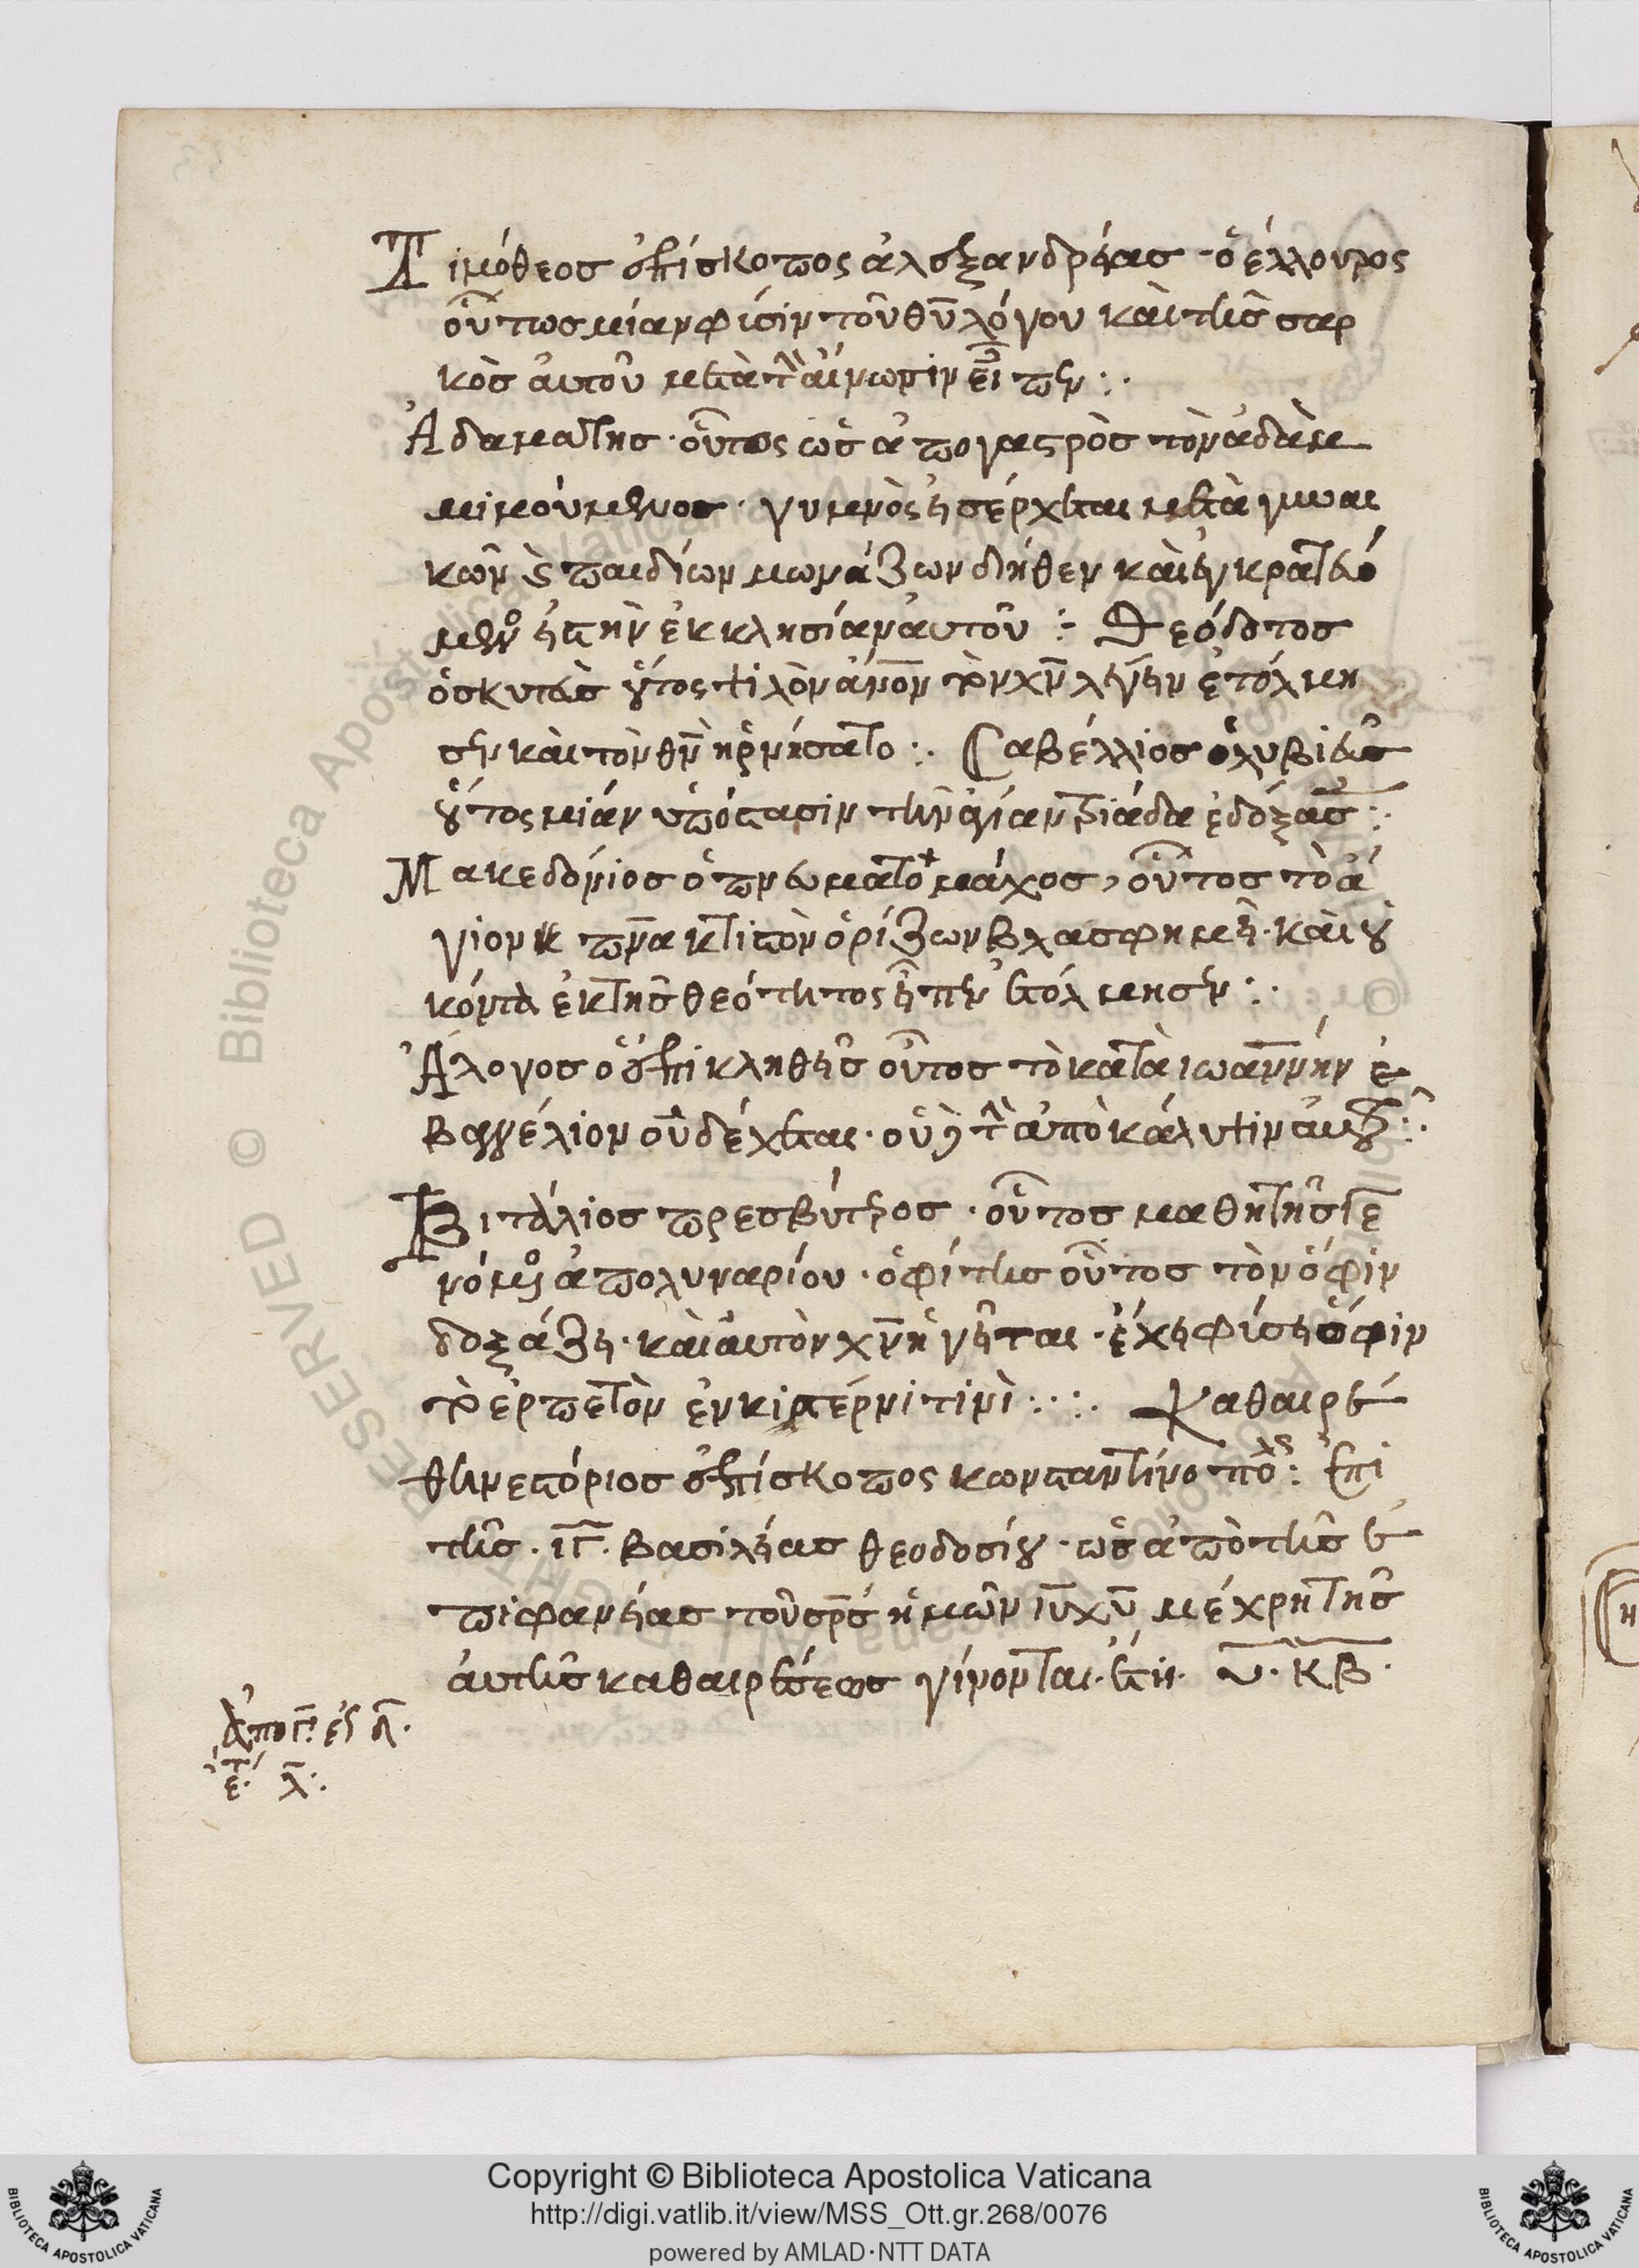 Τιμόθεος ἐπίσκοπος ἀλεξανδρείας · ὁ έλλουρος
οὗτως μίαν φύσιν τοῦ θ̅υ̅ λόγου καὶ τῆς σαρ
κὸς ἀυτοῦ μετὰ τὴν
Ἀδαμαΐτης · οὗτος ὡς ἀπογαστρὸς τὸν ἀδὰμ
μιμούμενος · γυμνὸς εἰσέρχεται μετὰ γυναι
κῶν ϗ παιδίων μωνάζων δῆθεν καὶ ἐγκρατευό
μενο εἰς τὴν ἐκκλησίαν ἀυτοῦ : Θεόδοτος
ὁ σκυτεὺς οὗτος ψιλὸν ἄ̅ν̅ο̅ν̅ τὸν χ̅ν̅ λέγειν ἐτόλμη
σεν καὶ τὸν θ̅ν̅ ἠρνήσατο :. Σαβέλλιος ὁ λυβιεὺς
οὗτος μίαν ὑπόστασιν τὴν ἁγίαν τριάδα ἐδόξασε :
Μακεδόνιος ὁ πνευματομάχος, οὗτος τὸ ἅ
γιον π̅ν̅α̅ κτιστὸν ὁρίζων βλασφημεῖ · καὶ οὐ
κόντα ἐκ τῆς θεότητος εἰπεῖν ἐτόλμησεν :.
Ἄλογος ὁ ἐπικληθεὶς οὗτος τὸ κατὰ ιωάννην ἐ
βαγγέλιον οὐ δέχεται · οὐδὲ τὴν ἀποκάλυψιν ἀυτοῦ :.
Βιτάλιος πρεσβύτερος · οὗτος μαθητὴς γε
νόμενο ἀπολυναρίου · ὀφίτης οὗτος τὸν ὄφιν
δοξάζει · καὶ ἀυτὸν χ̅ν̅ ἡγεῖται · ἔχει φύσει ὄφιν
τὸ ἑρπετὸν ἐν κιστέρνι τινὶ :. :. Καθαιρέ
θη νεστόριος ἐπίσκοπος κωνσταντίνοπόλ : ἐπὶ
τῆς · ι̅γ̅ · βασιλείας θεοδοσίου · ὡς ἀπὸ τῆς ἐ
πιφανείας τοῦ σ̅ρ̅ς̅ ἡμῶν ι̅υ̅ χ̅υ̅ μέχρη τῆς
ἀυτῆς καθαιρέσεως γίνονται · ἔτη · υ̅ · κ̅β̅ ·
Copyright © Biblioteca Apostolica Vaticana
http://digi.vatlib.it/view/MSS_Ott.gr.268/0076
powered by AMLAD·NTT DATA
BIBLIOTECA APOSTOLICA VATICANA
BIBLIOTECA APOSTOLICA VATICANA